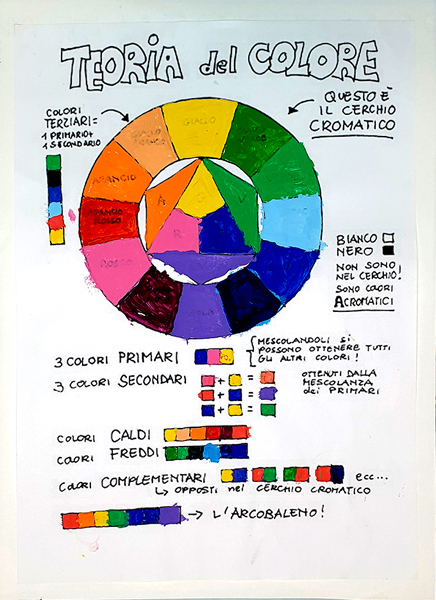 TEORIA del COLORE
COLORI
TERZIARI=
1 PRIMARIO+
1 SECONDARIO
QUESTO È
IL CERCHIO
CROMATICO
GIALLO
ARANCIO
ARANCIO
ROSSO
ROSSO
VIOLA
A
G
V
R
BIANCO
NERO
NON SONO
NEL CERCHIO!
SONO COLORI
ACROMATICI
3 COLORI PRIMARI
MESCOLANDOLI SI
POSSONO OTTENERE TUTTI
GLI ALTRI COLORI!
3 COLORI SECONDARI
+ =
+ =
+ =
OTTENUTI DALLA
MESCOLANZA
dei PRIMARI
COLORI CALDI
COLORI FREDDI
COLORI COMPLEMENTARI ecc...
OPPOSTI nel CERCHIO CROMATICO
L'ARCOBALENO!